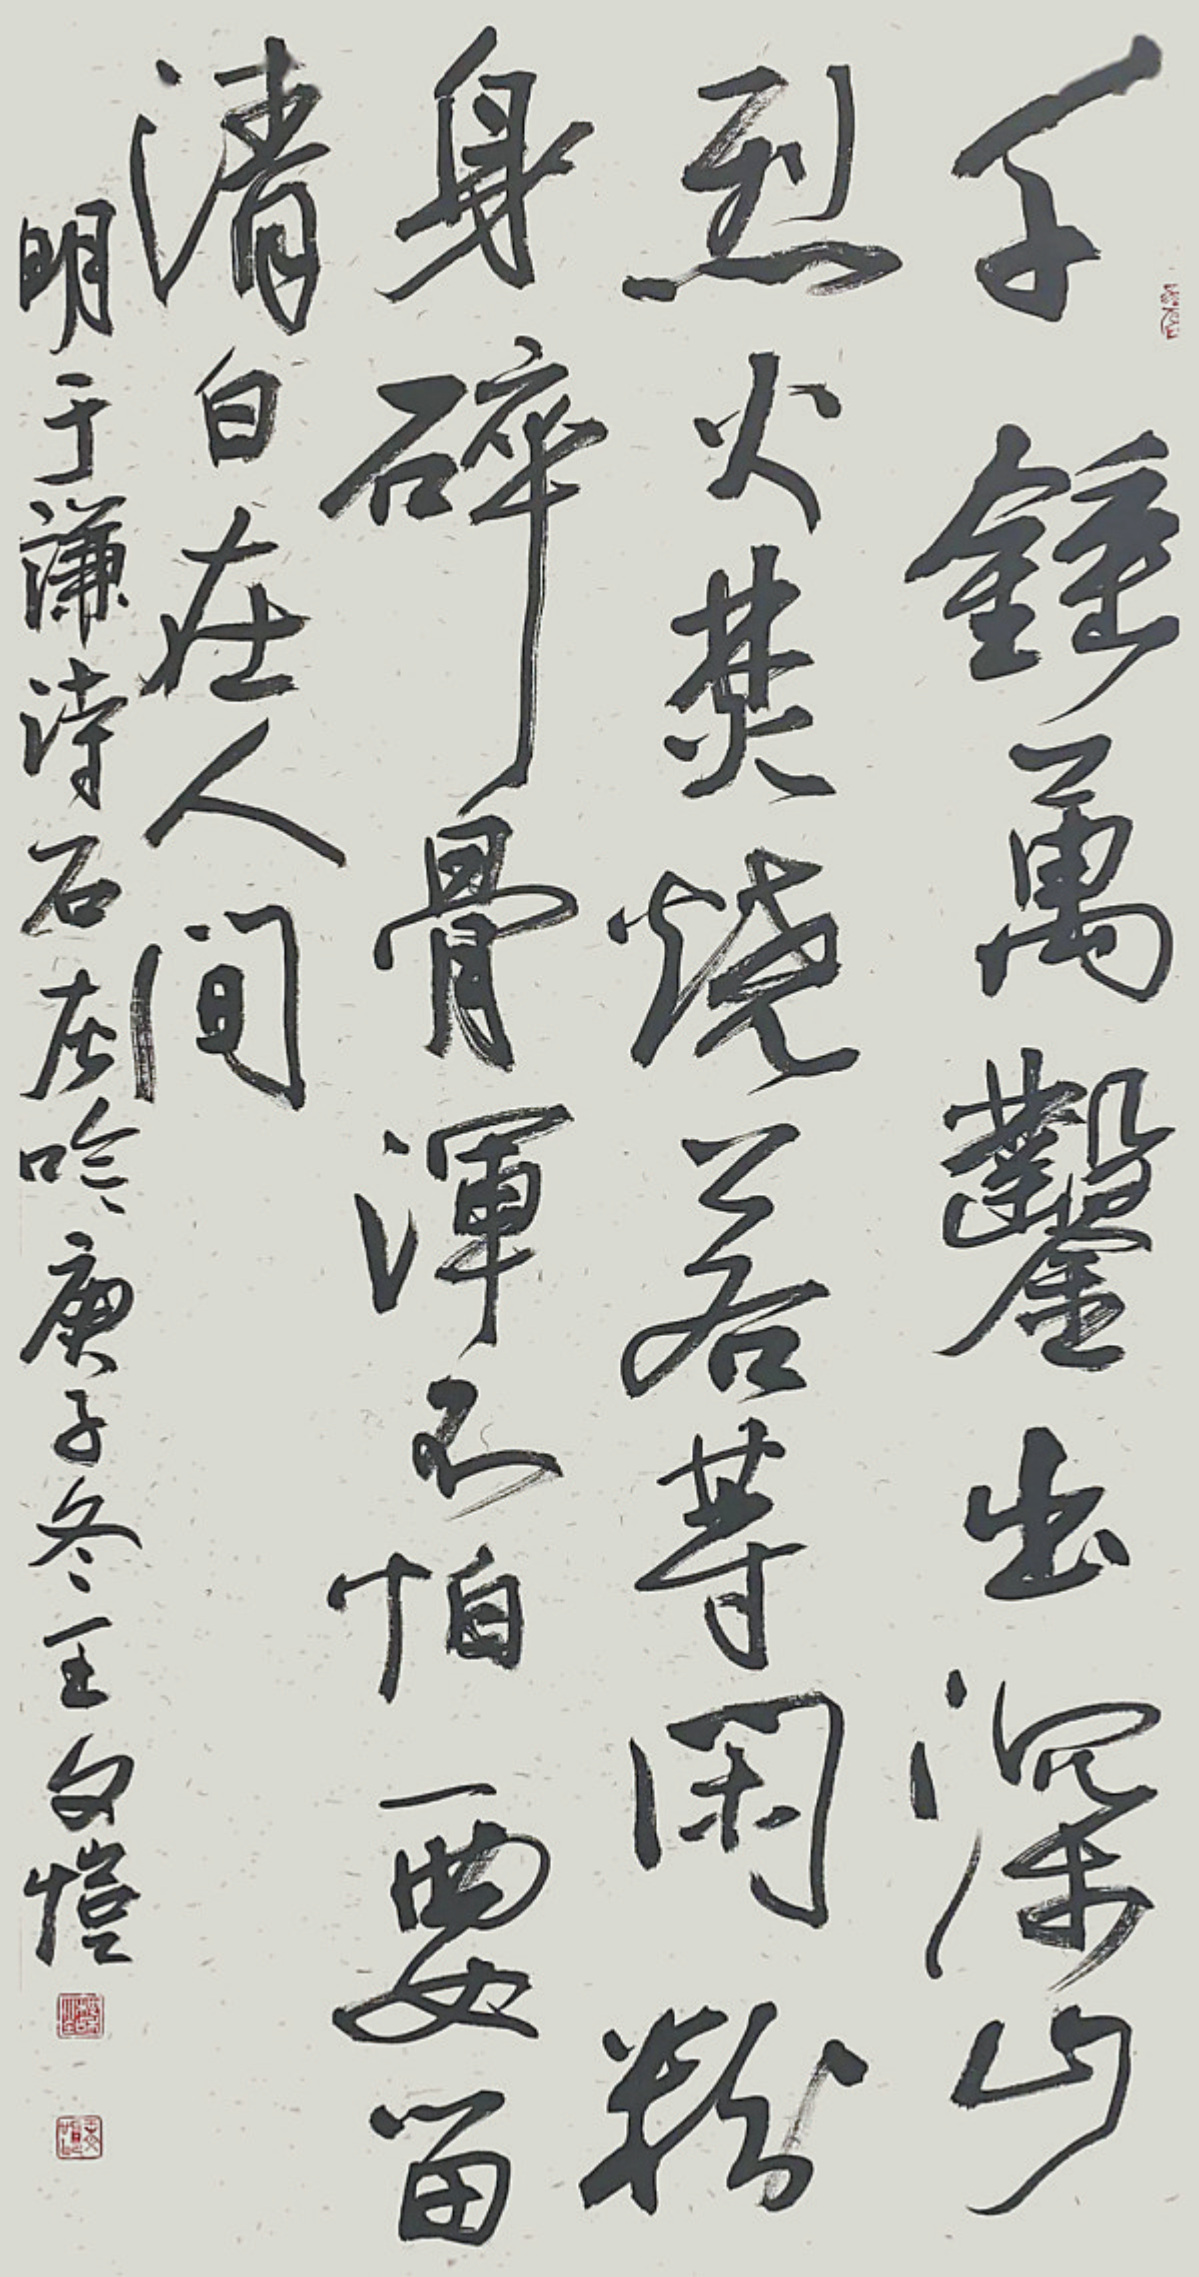 千锤萬鑿出深山
烈火焚烧若等闲粉
身碎骨渾不怕要留
清白在人间
明于谦诗石灰吟庚子冬王文愷